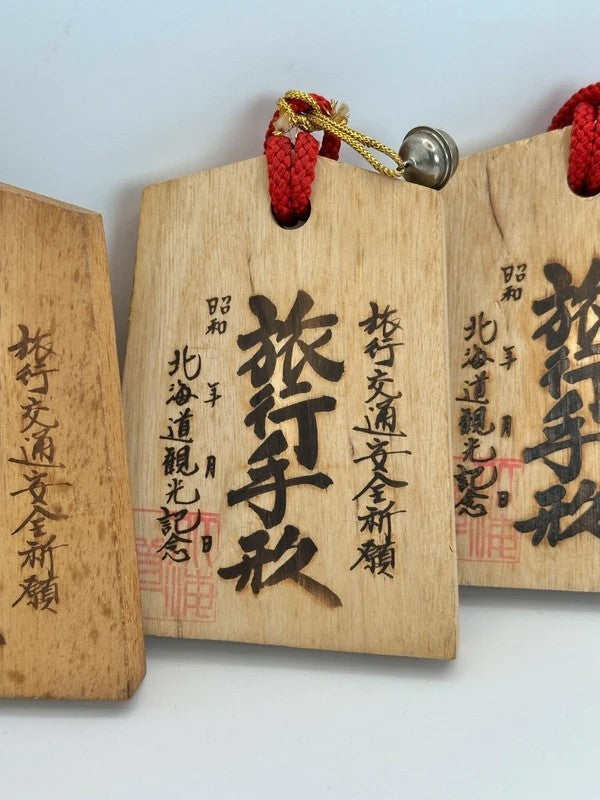 旅行交通安全祈願
旅行交通安全祈願
旅行手形
昭和 年 月 日
北海道観光記念
旅行手形
昭和 年 月 日
北海道観光記念